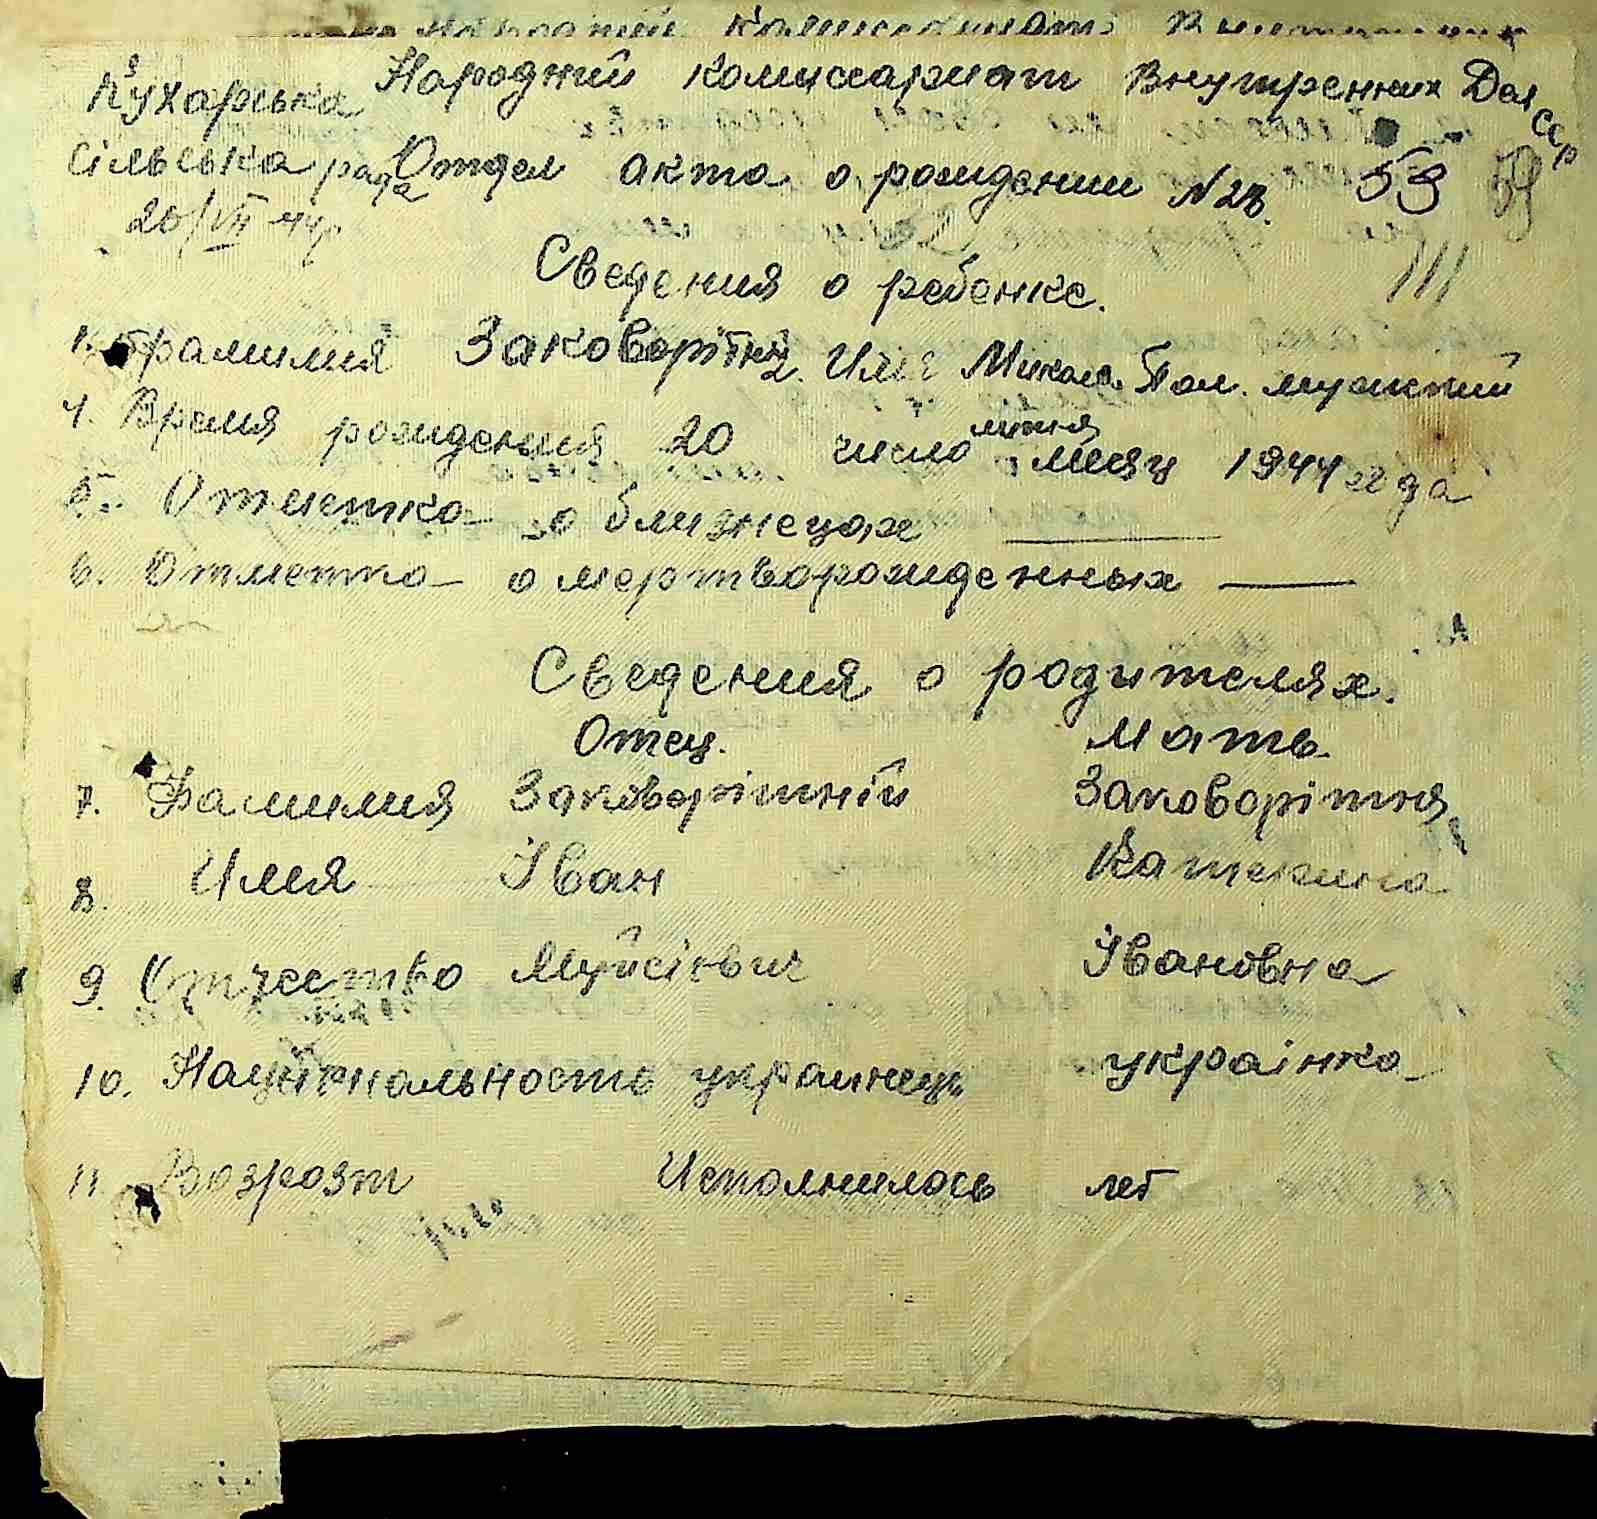 Народний Комиссариат
Кухарська Народний Комиссариат Внутренних Дел
ССР
сільська рада Отдел акта о рождении N 28. 53 59
20/VII 44р
Сведения о ребенке.
1. Фамилия Заковорітній 2. Имя Микола Пол. мужский
липня
4. Время рождения 20 число месяц 1944 года
5. Отметка о близнецах
6. Отметка о мертворожденных
Сведения о родителях.
Отец. Мать
7. Фамилия Заковорітній Заковорітня
8. Имя Іван Катерина
9. Отчество Муйсієвич Івановна
10. Национальность украинець українка
11. Возрозт Исполнилось лет